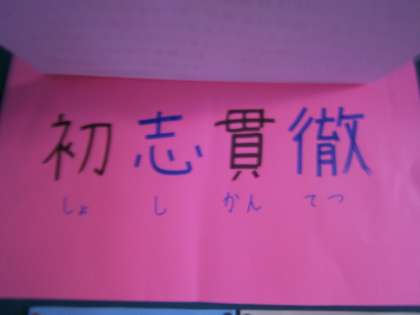 初志貫徹
しょ し かん てつ